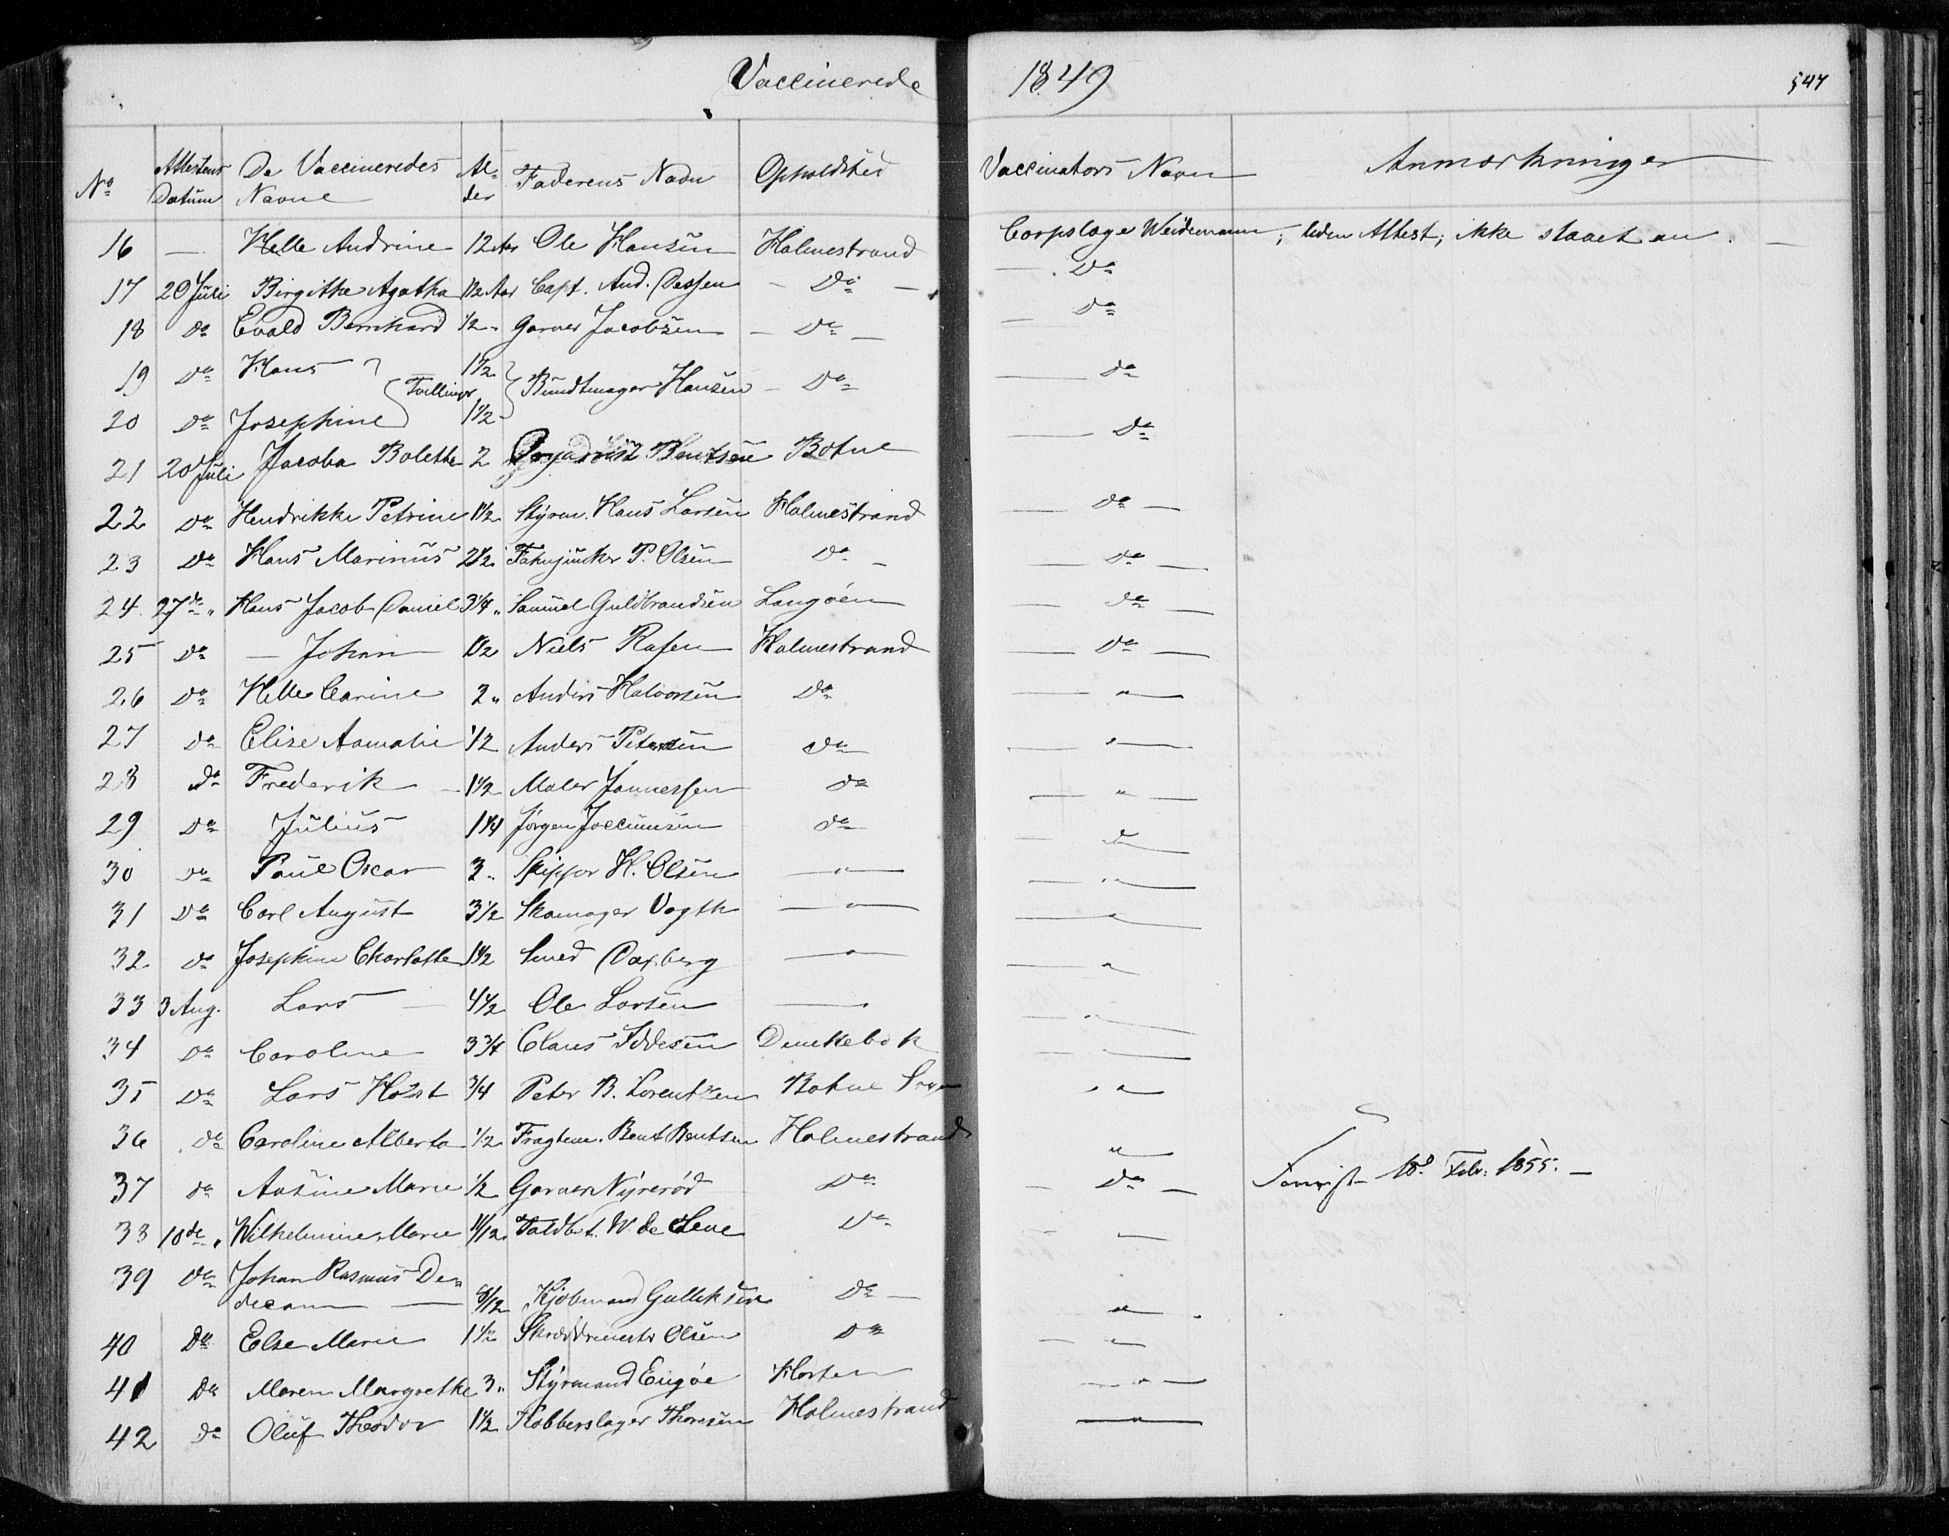 Vaccinerede 1849 547
No Attestens Datum De Vaccineredes Navne Al-der Faderens Navn Opholdsted Vaccinators Navn Anmærkninger
16 — Helle Andrine 12 Aar Ole Hansen Holmestrand Corpslæge Weidemann; uden Attest; ikke slaaet an.
17 20 Juli Birgitte Agatha 1/2 Aar Capt. And. Dessen — Do — — Do
18 do Evald Bernhard 1/2 Garver Jacobsen — Do — — Do
19 Do Hans } Tvillinger 1 1/2 } Bundtmager Hansen — Do — Do
20 Do Josephine 1 1/2 — Do
21 20 Juli Jacoba Bolette 2 Bentsen Botne
22 Do Hendrikke Petrine 1 1/2 Styrm. Hans Larsen Holmestrand — Do —
23 Do Hans Marinus 2 1/2 Fanejunker P. Olsen Do — — Do —
24 27de " Hans Jacob Daniel 3/4 " Samuel Guldbrandsen Langøen — Do —
25 Do — Johan — 1/2 Niels Rasen Holmestrand — Do —
26 Do Helle Carine 2 " Anders Halvorsen Do — " —
27 Do Elise Aamalie 1/2 Anders Petersen Do — " —
28 Do Frederik — 1 1/2 Maler Jannessen do — " —
29 Do Julius 1 1/4 Jørgen Joccumsen do — " —
30 Do Paul Oscar 3 " Skipper H. Olsen — " — — " —
31 Do Carl August 3 1/2 Skomager Vogth — " — — " —
32 do Josephine Charlotte 1 1/2 Smed Daxberg — " — — " —
33 3 Aug. Lars — 4 1/2 Ole Larsen — — " —
34 Do Caroline 3 3/4 Claus Iddesen Dunkebek — " —
35 Do Lars Holst 3/4 Peter B. Lorentzen Botne " "
36 Do Caroline Alberta 1/2 Fragtem. Bent Bentsen Holmestrand "
37 do Aasine Marie 1/2 Garver Nyrerød Do — Do — 18d Febr. 1855. —
38 10de " Wilhelmine Marie 11/12 Toldbt. W de Seue Do — " —
39 Do Johan Rasmus De-
decam — 8/12 Kjøbmand Gulliksen Do — "
40 Do Else Marie 1 Skræddermestr Olsen Do — " —
41 Do Maren Margrethe 3 " Styrmand Engøe Horten — " —
42 do Oluf Theodor 1 1/2 Kobberslager Thoresen Holmestrand — " —